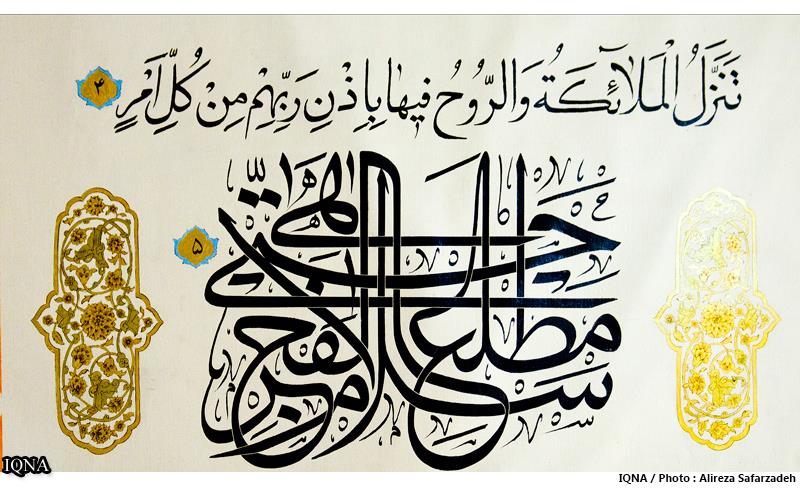 تَنَزَّلُ الْمَلآئِكَةُ وَالرُّوحُ فيها بِاِذْنِ رَبِّهِمْ مِنْ كُلِّ اَمْرٍ ۴
سلام هي حتى مطلع الفجر ۵
IQNA
IQNA / Photo : Alireza Safarzadeh